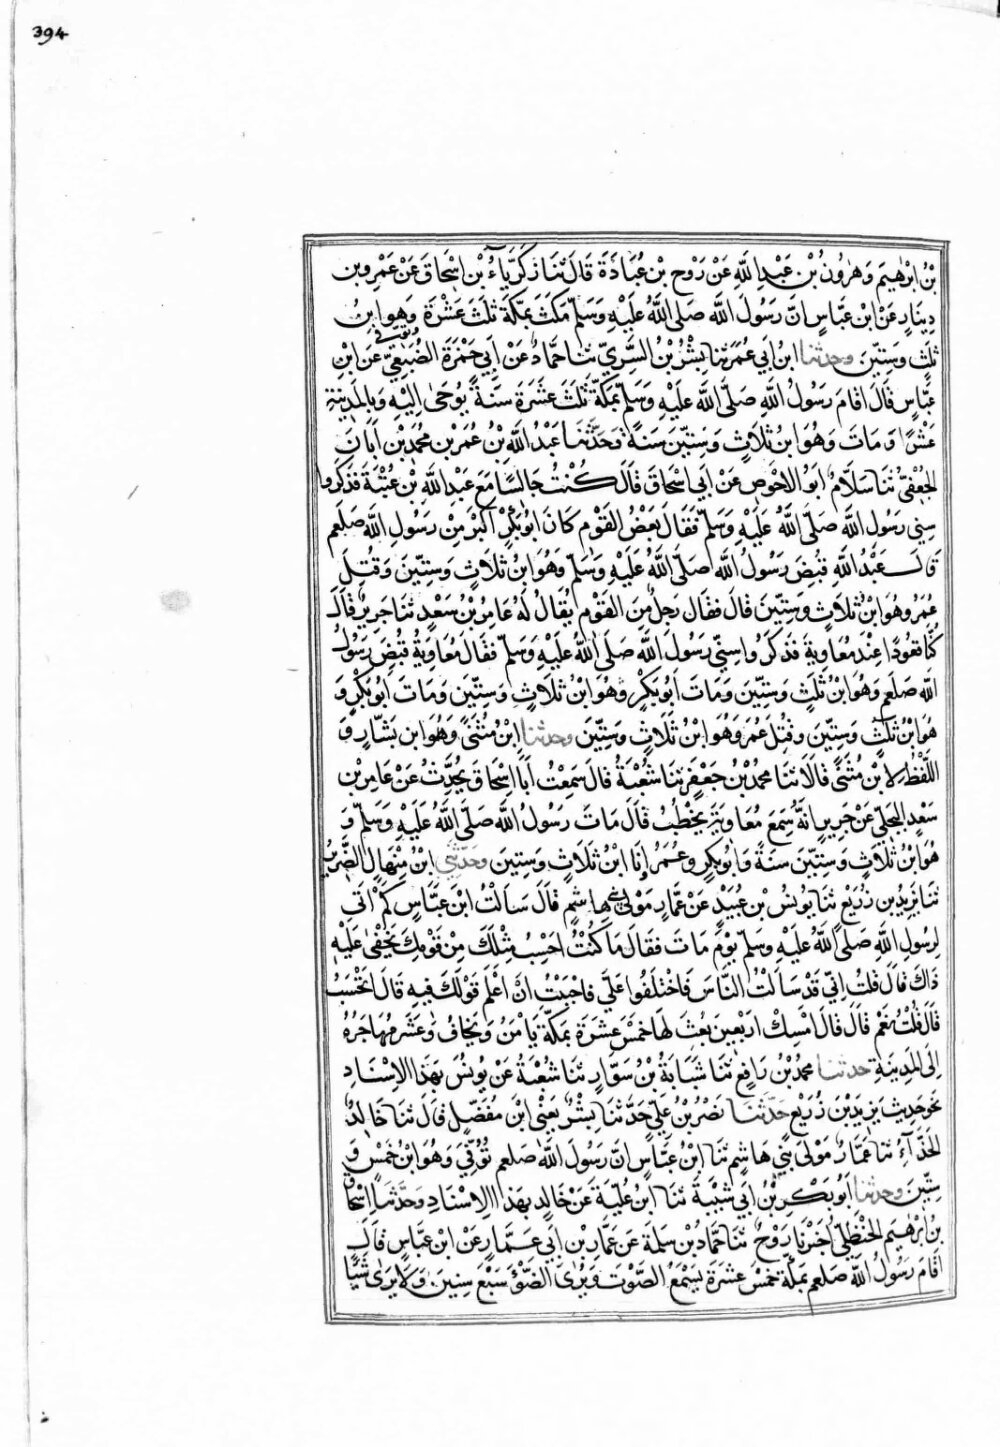 394
بْنُ اِبْرٰهِيمَ وَهٰرُونُ بْنُ عَبْدِ اللّٰهِ عَنْ رَوْحِ بْنِ عُبَادَةَ قَالَ ثَنَا زَكَرِيَّاءُ بْنُ اِسْحَاقَ عَنْ عَمْرِو بْنِ
دِينَارٍ عَنْ ابْنِ عَبَّاسٍ اَنَّ رَسُولَ اللّٰهِ صَلَّى اللّٰهُ عَلَيْهِ وَسَلَّمَ مَكَثَ بِمَكَّةَ ثَلٰثَ عَشْرَةَ وَتُوُفِّىَ وَهُوَ ابْنُ
ثَلٰثٍ وَسِتِّينَ وحدثنا ابْنُ اَبِي عُمَرَ ثَنَا بِشْرُ بْنُ السَّرِيِّ ثَنَا حَمَّادٌ عَنْ اَبِي جَمْرَةَ الضُّبَعِيِّ عَنِ ابْنِ
عَبَّاسٍ قَالَ اَقَامَ رَسُولُ اللّٰهِ صَلَّى اللّٰهُ عَلَيْهِ وَسَلَّمَ بِمَكَّةَ ثَلٰثَ عَشَرَةَ سَنَةً يُوحٰى اِلَيْهِ وَبِالْمَدِينَةِ
عَشْرًا وَمَاتَ وَهُوَ ابْنُ ثَلَاثٍ وَسِتِّينَ سَنَةً وَحَدَّثَنَا عَبْدُ اللّٰهِ بْنُ عُمَرَ بْنِ مُحَمَّدِ بْنِ اَبَانَ
الْجُعْفِيُّ ثَنَا سَلَّامٌ اَبُو الْاَحْوَصِ عَنْ اَبِي اِسْحَاقَ قَالَ كُنْتُ جَالِسًا مَعَ عَبْدِ اللّٰهِ بْنِ عُتْبَةَ فَذَكَرُوا
سِنِي رَسُولِ اللّٰهِ صَلَّى اللّٰهُ عَلَيْهِ وَسَلَّمَ فَقَالَ بَعْضُ الْقَوْمِ كَانَ اَبُو بَكْرٍ اَكْبَرَ مِنْ رَسُولِ اللّٰهِ صَلعم
قَالَ عَبْدُ اللّٰهِ قُبِضَ رَسُولُ اللّٰهِ صَلَّى اللّٰهُ عَلَيْهِ وَسَلَّمَ وَهُوَ ابْنُ ثَلَاثٍ وَسِتِّينَ وَقُتِلَ
عُمَرُ وَهُوَ ابْنُ ثَلَاثٍ وَسِتِّينَ قَالَ فَقَالَ رَجُلٌ مِنَ الْقَوْمِ يُقَالُ لَهُ عَامِرُ بْنُ سَعْدٍ ثَنَا جَرِيرٌ قَالَ
كُنَّا قُعُودًا عِنْدَ مُعَاوِيَةَ فَذَكَرُوا سِنِي رَسُولِ اللّٰهِ صَلَّى اللّٰهُ عَلَيْهِ وَسَلَّمَ فَقَالَ مُعَاوِيَةُ قُبِضَ رَسُولُ
اللّٰهِ صَلعم وَهُوَ ابْنُ ثَلٰثٍ وَسِتِّينَ وَمَاتَ اَبُو بَكْرٍ وَهُوَ ابْنُ ثَلَاثٍ وَسِتِّينَ وَمَاتَ اَبُو بَكْرٍ وَ
هُوَ ابْنُ ثَلٰثٍ وَسِتِّينَ وَقُتِلَ عُمَرُ وَهُوَ ابْنُ ثَلَاثٍ وَسِتِّينَ وحدثنا ابْنُ مُثَنًّى وَهُوَ ابن بَشَّارٍ وَ
اللَّفْظُ لِابْنِ مُثَنًّى قَالَا ثَنَا مُحَمَّدُ بْنُ جَعْفَرٍ ثَنَا شُعْبَةُ قَالَ سَمِعْتُ اَبَا اِسْحَاقَ يُحَدِّثُ عَنْ عَامِرِ بْنِ
سَعْدٍ الْبَجَلِيِّ عَنْ جَرِيرٍ اَنَّهُ سَمِعَ مُعَاوِيَةَ يَخْطُبُ فَقَالَ مَاتَ رَسُولُ اللّٰهِ صَلَّى اللّٰهُ عَلَيْهِ وَسَلَّمَ وَ
هُوَ ابْنُ ثَلَاثٍ وَسِتِّينَ سَنَةً وَاَبُو بَكْرٍ وَعُمَرُ اَنَا ابْنُ ثَلَاثٍ وَسِتِينَ وَحَدَّثَنِي ابْنُ مِنْهَالٍ الضَّرِيرُ
ثَنَا يَزِيدُ بْنُ زُرَيْعٍ ثَنَا يُونُسُ بْنُ عُبَيْدٍ عَنْ عَمَّارٍ مَوْلٰى بَنِي هَاشِمٍ قَالَ سَاَلْتُ ابْنَ عَبَّاسٍ كَمْ اَتَى
لِرَسُولِ اللّٰهِ صَلَّى اللّٰهُ عَلَيْهِ وَسَلَّمَ يَوْمَ مَاتَ فَقَالَ مَا كُنْتُ اَحْسِبُ مِثْلَكَ مِنْ قَوْمِكَ يَخْفٰى عَلَيْهِ
ذَاكَ قَالَ قُلْتُ اِنِّي قَدْ سَاَلْتُ النَّاسَ فَاخْتَلَفُوا عَلَيَّ فَاَحْبَبْتُ اَنْ اَعْلَمَ قَوْلَكَ فِيهِ قَالَ اَتَحْسُبُ
قَالَ قُلْتُ نَعَمْ قَالَ قَالَ اَمْسِكْ اَرْبَعِينَ بُعِثَ لَهَا خَمْسَ عَشْرَةَ بِمَكَّةَ يَاْمَنُ وَيَخَافُ وَعَشْرَ مُهَاجَرُهُ
اِلَى الْمَدِينَةِ حدثنا مُحَمَّدُ بْنُ رَافِعٍ ثَنَا شَبَابَةُ بْنُ سَوَّارٍ ثَنَا شُعْبَةُ عَنْ يُونُسَ بِهَذَا الْاِسْنَادِ
نَحْوَ حَدِيثِ يَزِيدَ بْنِ زُرَيْعٍ حَدَّثَنَا نَصْرُ بْنُ عَلِيٍّ حَدَّثَنَا بِشْرٌ يَعْنِي ابْنَ مُفَضَّلٍ قَالَ ثَنَا خَالِدٌ
الْحَذَّآءُ ثَنَا عَمَّارٌ مَوْلٰى بَنِي هَاشِمٍ ثَنَا ابْنُ عَبَّاسٍ اَنَّ رَسُولَ اللّٰهِ صَلعم تُوُفِّيَ وَهُوَ ابْنُ خَمْسٍ وَ
سِتِّينَ وحدثنا اَبُو بَكْرِ بْنُ اَبِي شَيْبَةَ ثَنَا ابْنُ عُلَيَّةَ عَنْ خَالِدٍ بِهَذَا الْاِسْنَادِ وَحَدَّثَنَا اِسْحَاقُ
بْنُ اِبْرٰهِيمَ الْحَنْظَلِيُّ اَخْبَرَنَا رَوْحٌ ثَنَا حَمَّادُ بْنُ سَلَمَةَ عَنْ عَمَّارِ بْنِ اَبِي عَمَّارٍ عَنْ ابْنِ عَبَّاسٍ قَالَ
اَقَامَ رَسُولُ اللّٰهِ صَلعم بِمَكَّةَ خَمْسَ عَشْرَةَ يَسْمَعُ الصَّوْتَ وَيَرٰى الضَّوْءَ سَبْعَ سِنِينَ وَلَا يَرٰى شَيْئًا